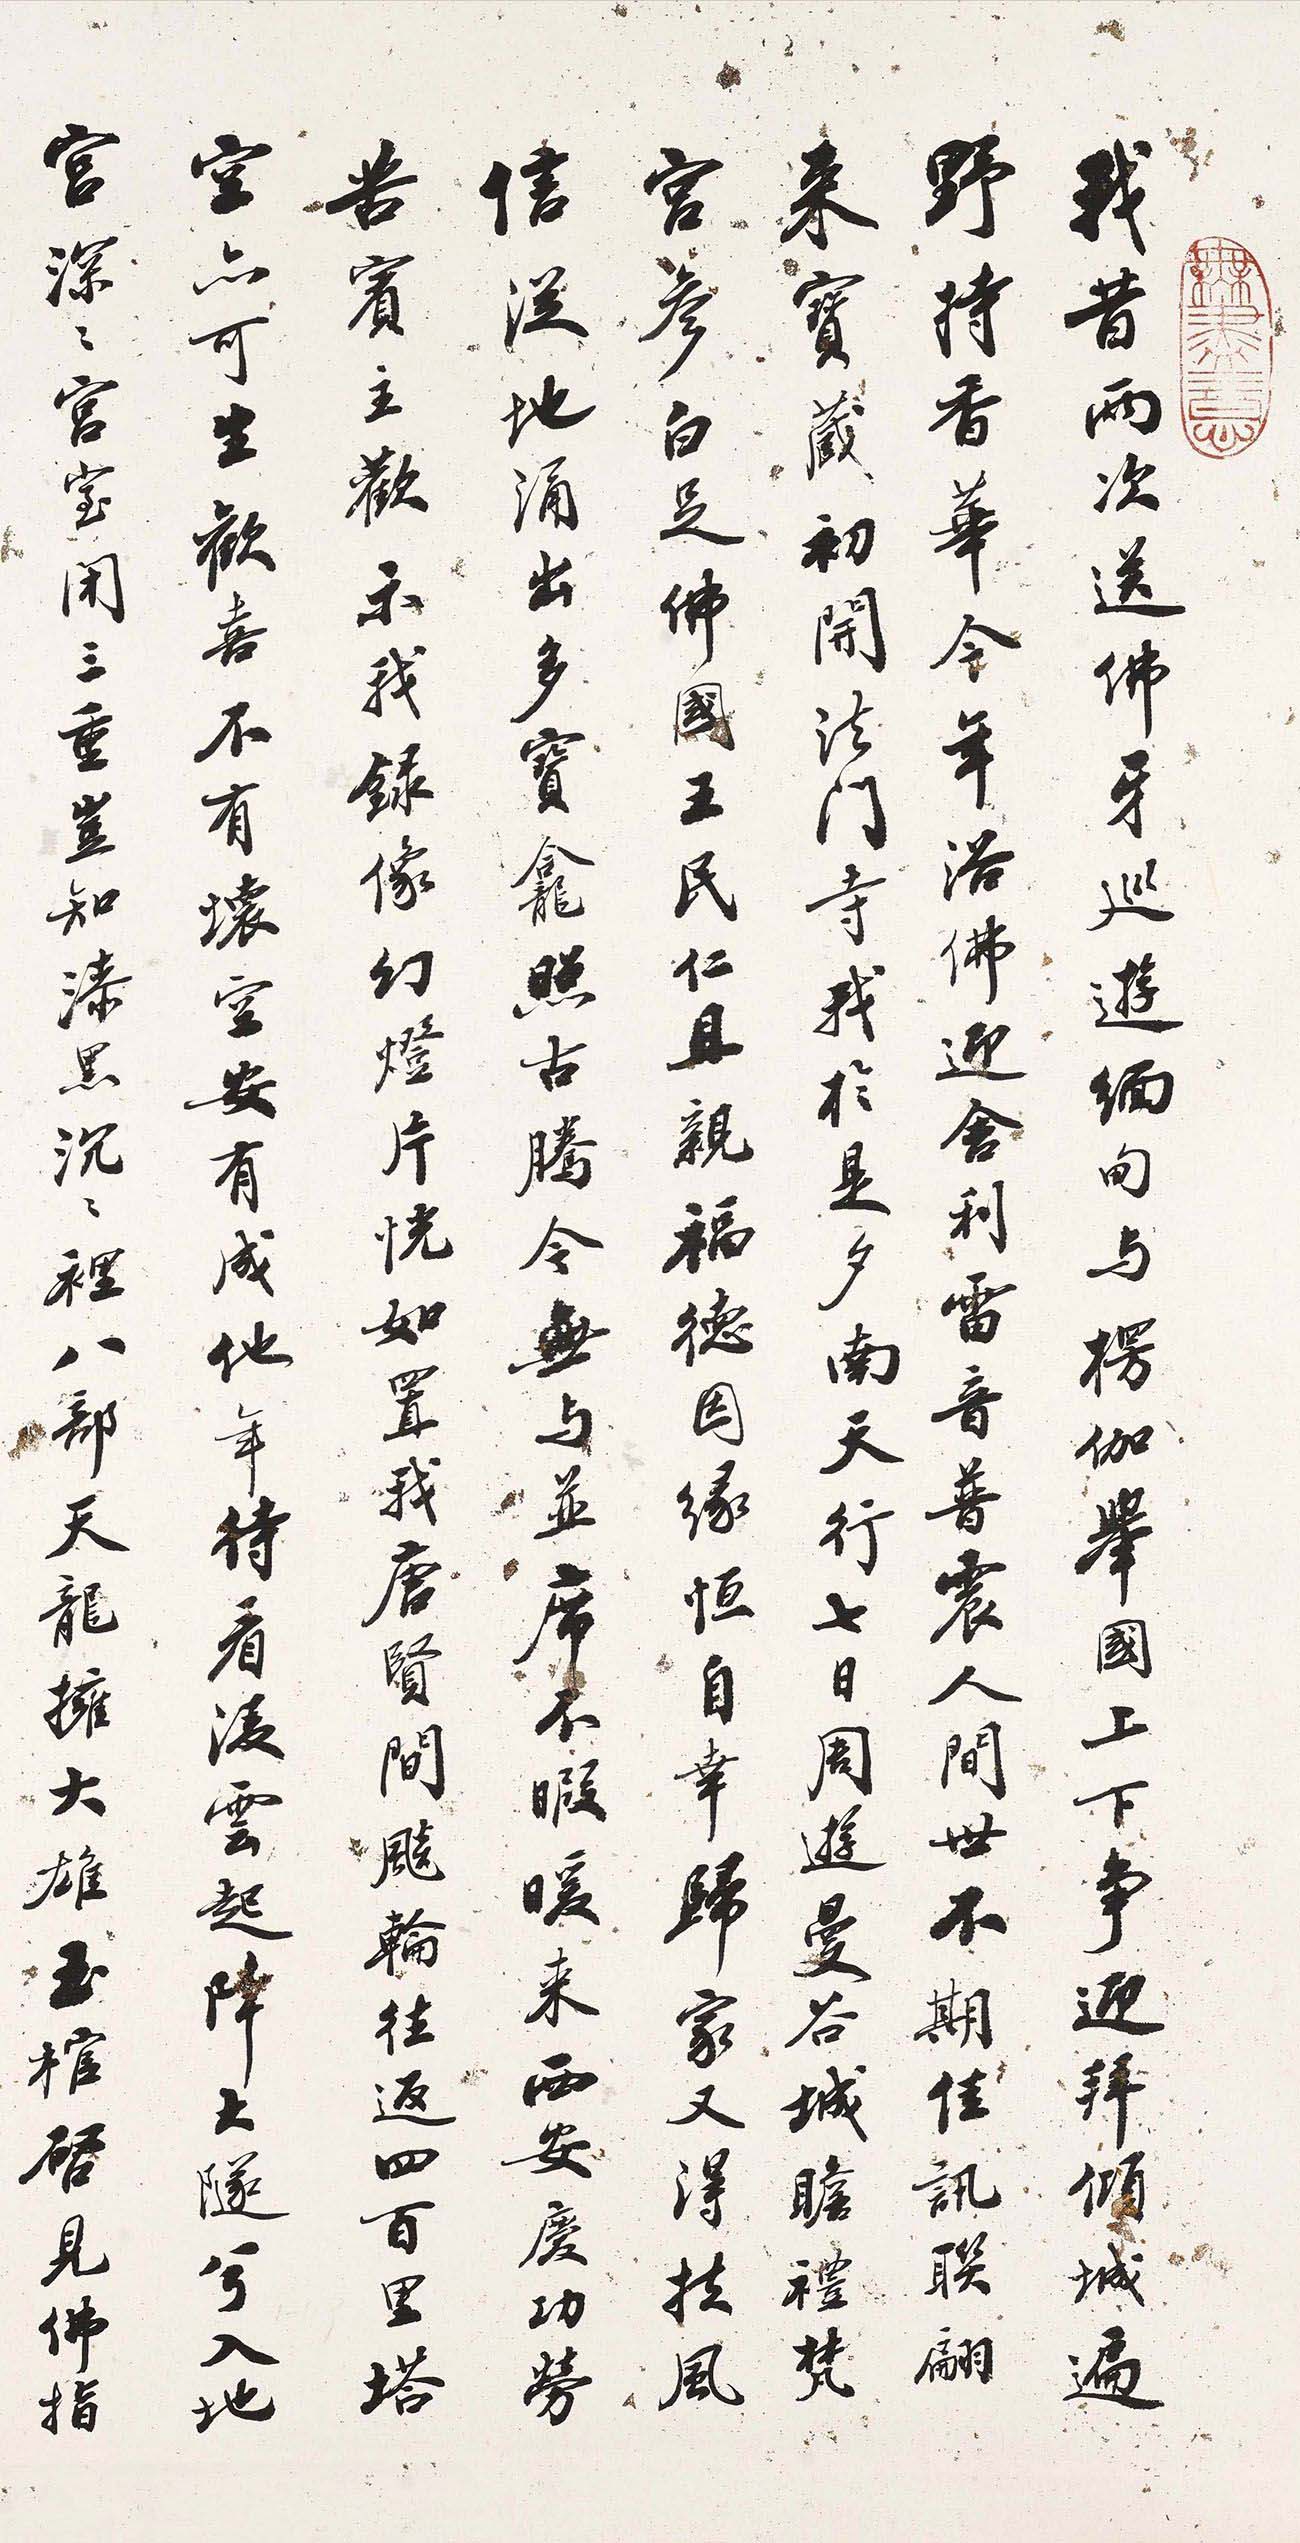 無盡意
我昔兩次送佛牙巡遊緬甸与楞伽舉國上下争迎拜傾城遍
野持香華今年浴佛迎舍利雷音普震人間世不期佳訊联翩
来寶藏初開法门寺我於是夕南天行七日周遊曼谷城瞻禮梵
宮參白足佛國王民仁且親福德因缘恒自幸歸家又得扶風
信從地涌出多寶龕照古腾今無与並席不暇暖来西安慶功勞
苦賓主歡示我録像幻燈片恍如置我唐賢間飈輪往返四百里塔
空亦可生歡喜不有壞空安有成他年待看凌雲起降大隧兮入地
宮深〻宮室闭三重豈知漆黑沉〻裡八部天龍擁大雄玉棺啓見佛指